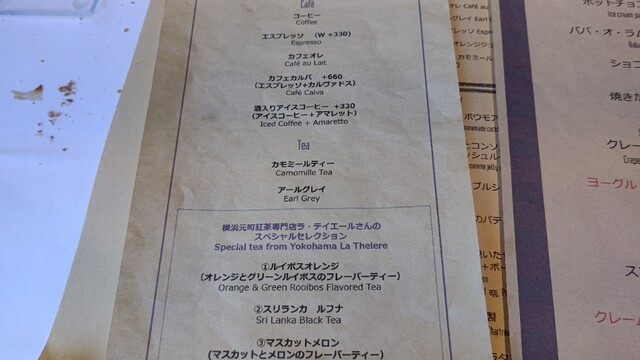 Café
コーヒー
Coffee
エスプレッソ (W +330)
Espresso
カフェオレ
Café au Lait
カフェカルバ +660
(エスプレッソ+カルヴァドス)
Café Calva
酒入りアイスコーヒー +330
(アイスコーヒー+アマレット)
Iced Coffee + Amaretto
Tea
カモミールティー
Camomille Tea
アールグレイ
Earl Grey
横浜元町紅茶専門店ラ・テイエールさんの
スペシャルセレクション
Special tea from Yokohama La Theiere
①ルイボスオレンジ
(オレンジとグリーンルイボスのフレーバーティー)
Orange & Green Rooibos Flavored Tea
②スリランカ ルフナ
Sri Lanka Black Tea
③マスカットメロン
(マスカットとメロンのフレーバーティー)
ホットチョコ
Ice cream
ババ・オ・ラム
ショコ
焼きた
クレー
Crape
ヨーグル
クレーム